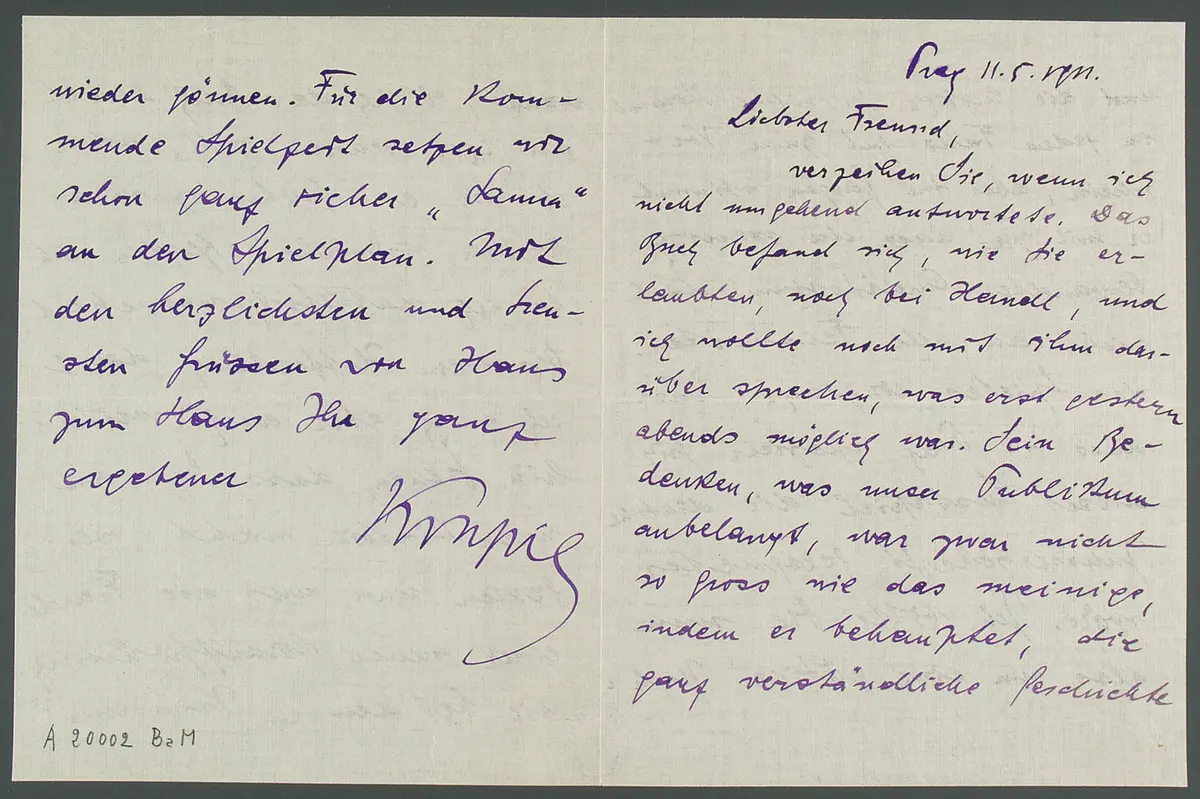 Prag 11. 5. 1911.
Liebster Freund,
verzeihen Sie, wenn ich
nicht umgehend antwortete. Das
Buch befand sich, wie Sie er-
laubten, noch bei Handl, und
ich wollte noch mit ihm dar-
über sprechen, was erst gestern
abends möglich war. Sein Be-
denken, was unser Publikum
anbelangt, war zwar nicht
so gross wie das meinige,
indem er behauptet, die
ganz verständliche Geschichte
wieder gönnen. Für die kom-
mende Spielzeit setzen wir
schon ganz sicher „Sanna“
an den Spielplan. Mit
den herzlichsten und treu-
sten Grüssen von Haus
zum Haus Ihr ganz
ergebener
A 20002 BaM